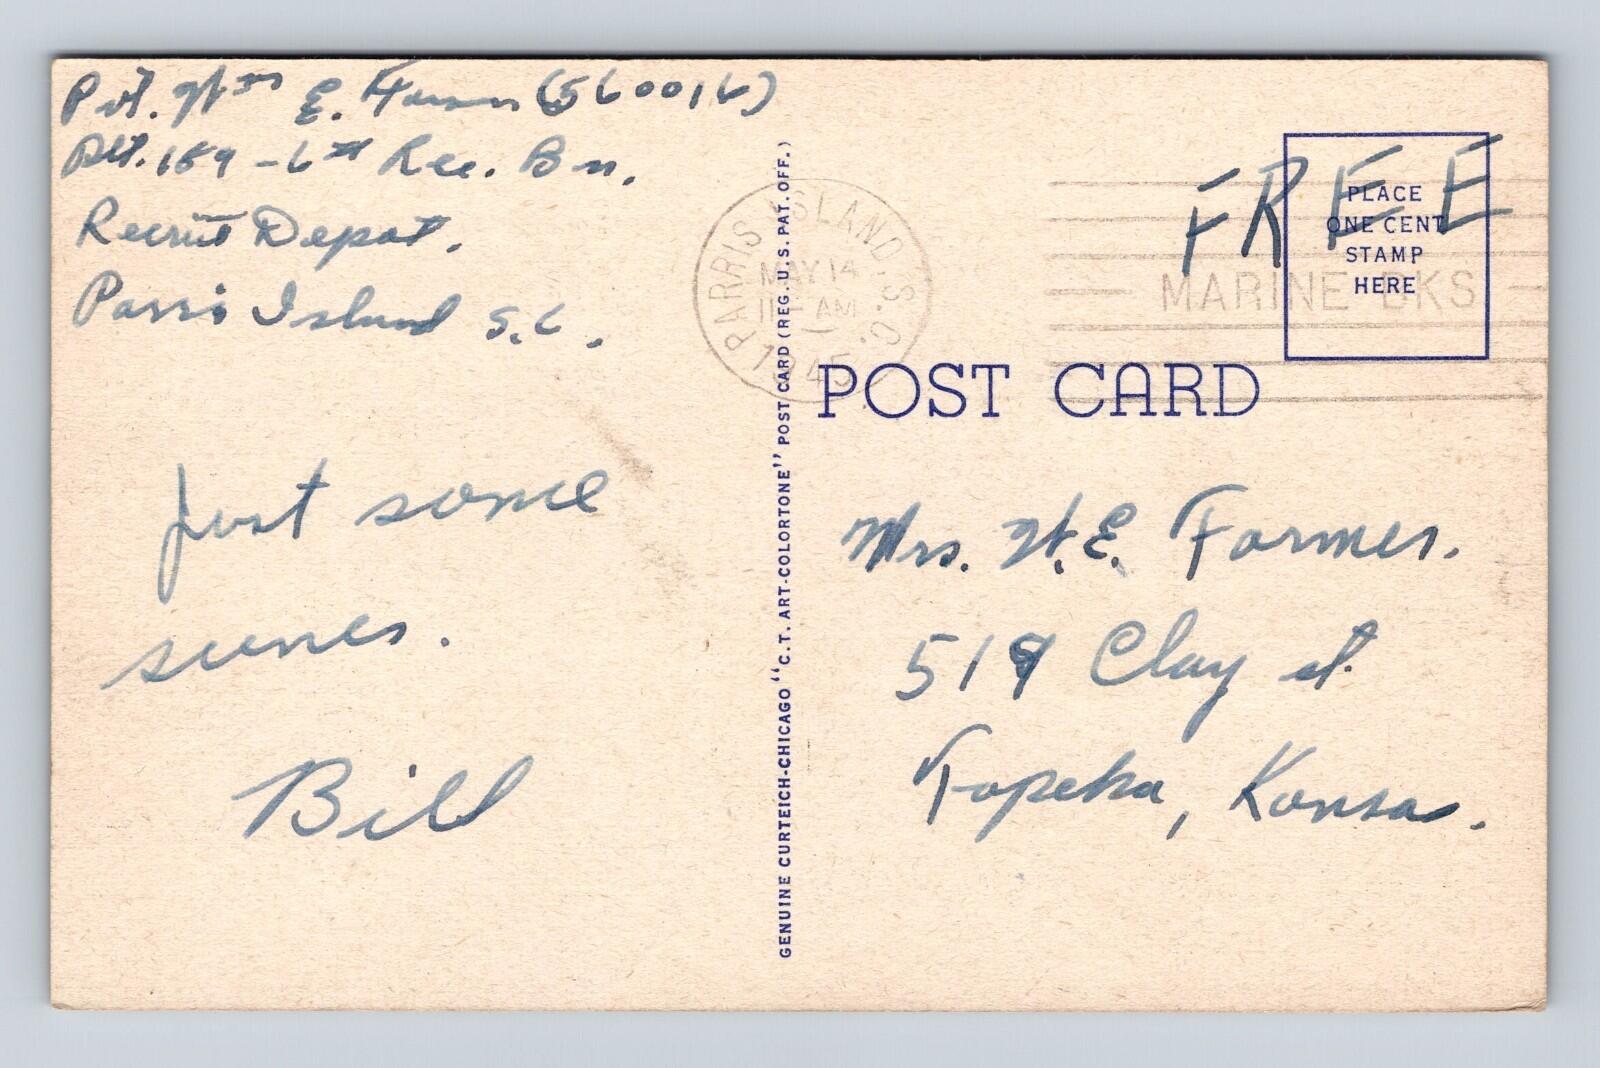 Pvt. Wm E. Farmer (560016)
Plt. 159 - 6th Rec. Bn.
Recruit Depot.
Parris Island S.C.
Just some
scenes.
Bill
GENUINE CURTEICH-CHICAGO "C. T. ART-COLORTONE" POST CARD (REG. U.S. PAT. OFF.)
PARRIS ISLAND, S.C.
MAY 14
11 AM
1945
MARINE BKS
FREE
PLACE
ONE CENT
STAMP
HERE
POST CARD
Mrs. W.E. Farmer.
519 Clay st.
Topeka, Kansas.